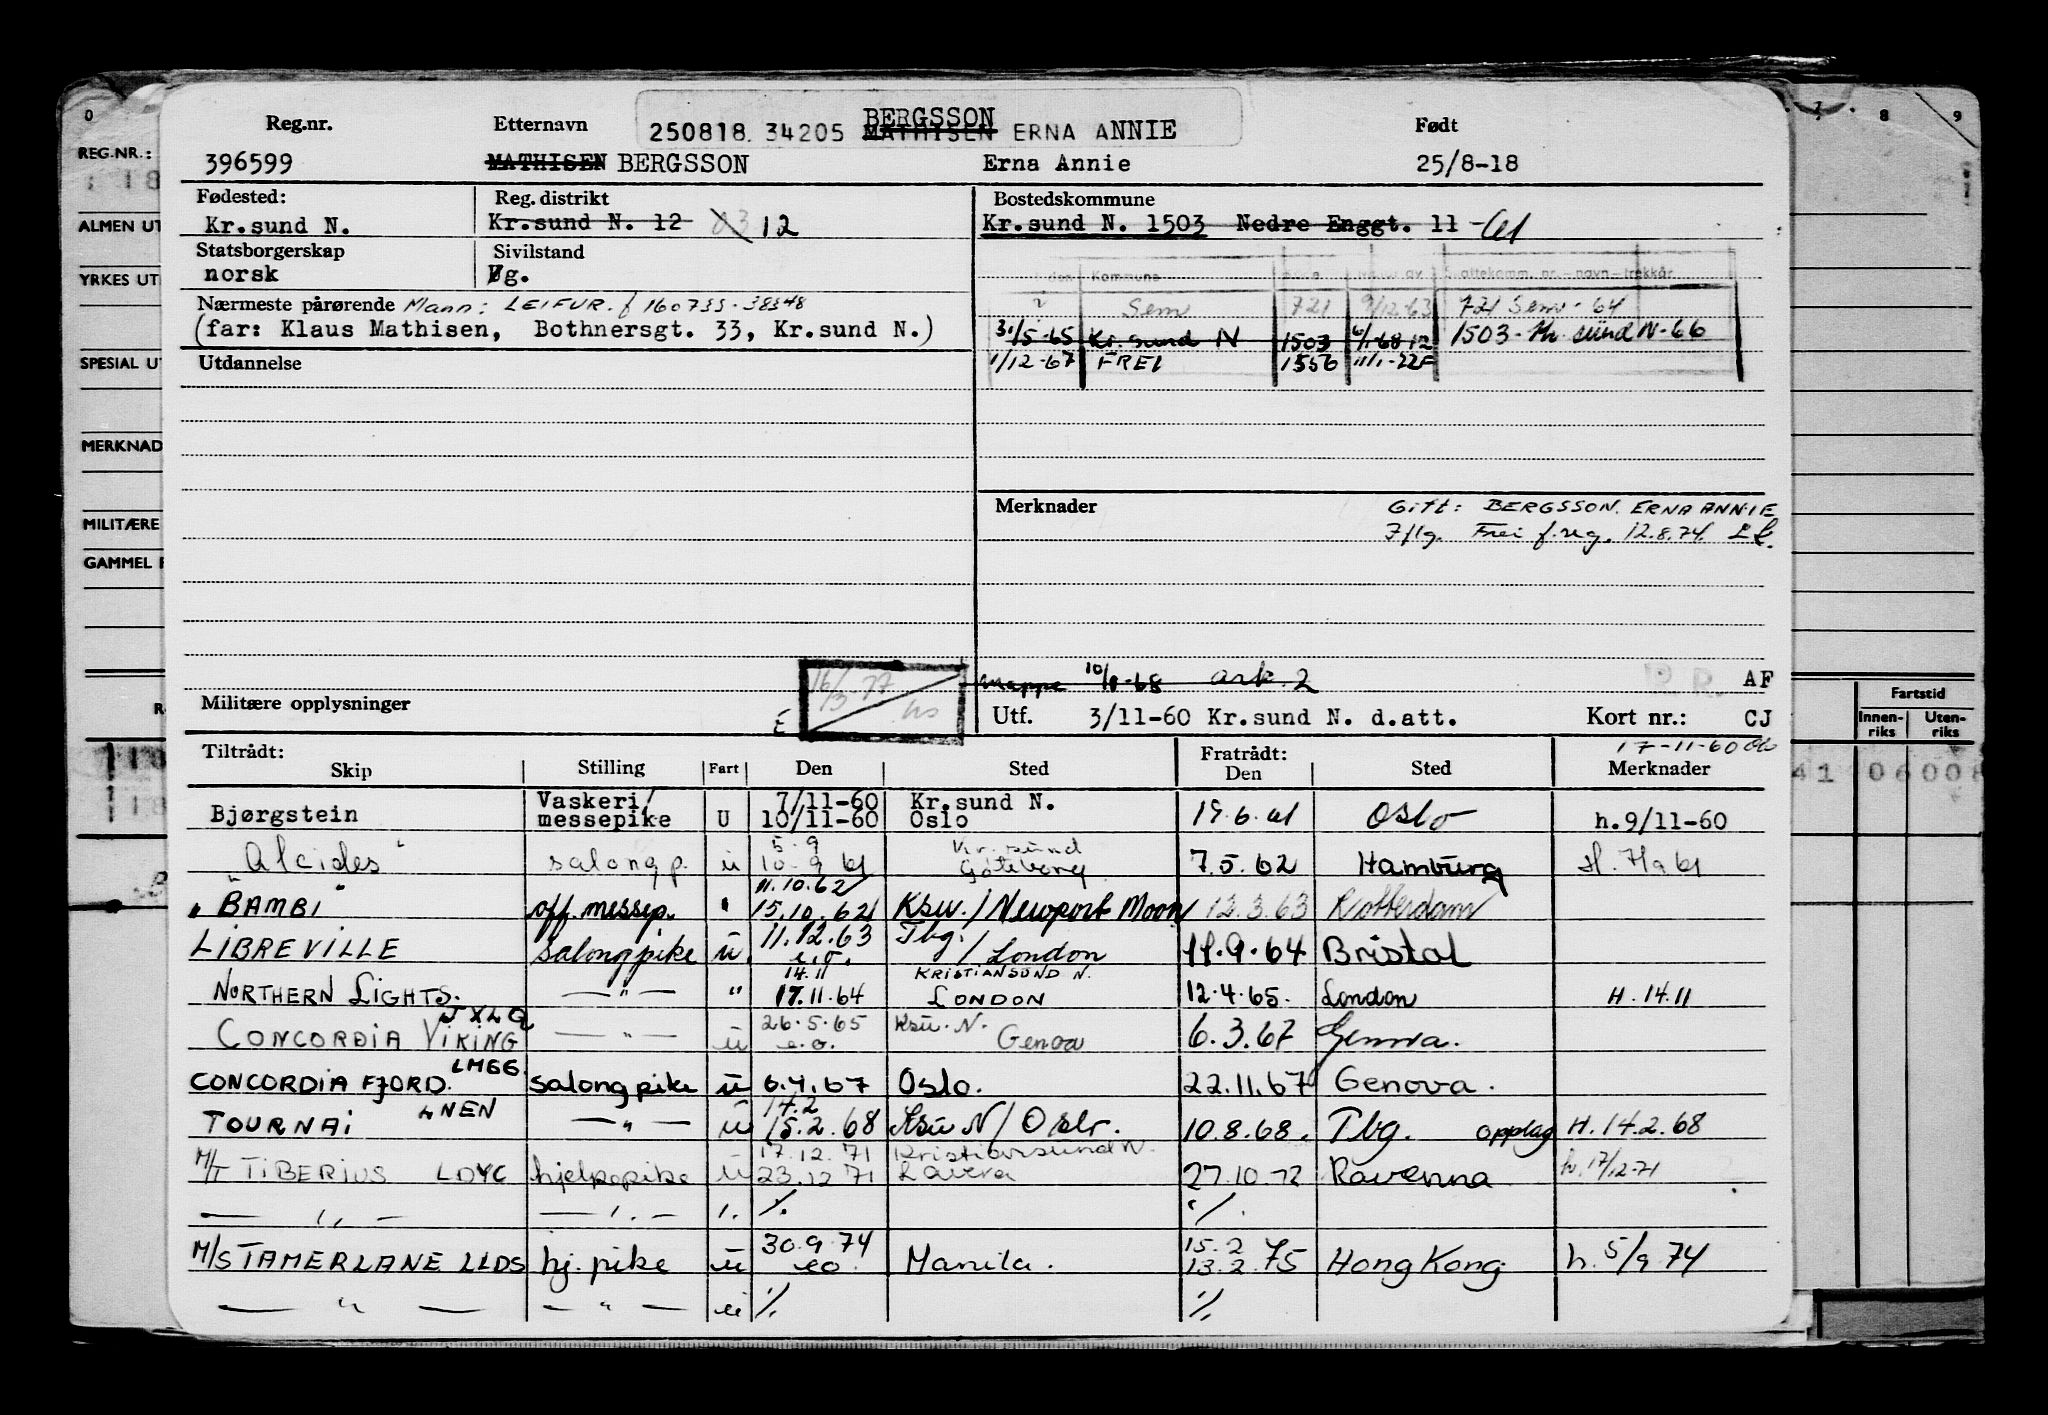 0 7 8 9
BERGSSON
Reg.nr. Etternavn 250818.34205 MATHISEN ERNA ANNIE Født
REG.NR.: 396599 MATHISEN BERGSSON Erna Annie 25/8-18
Fødested: Reg. distrikt Bostedskommune
ALMEN UT Kr.sund N. Kr.sund N. 12 03 12 Kr.sund N. 1503 Nedre Enggt. 11
Statsborgerskap Sivilstand
YRKES UT norsk g. Kommune
Nærmeste pårørende Mann: LEIFUR. f 160733-38348 Sem 721 9/12-63 721 Sem - 64
(far: Klaus Mathisen, Bothnersgt. 33, Kr.sund N.) 31/5-65 Kr.sund N 1503 6/1-68 12 1503 - Kr sund N-66
SPESIAL UT Utdannelse 1/12-67 FREI 1556
MERKNAD
Merknader Gift: BERGSSON. ERNA ANNIE
MILITÆRE Flg. Frei f.reg. 12.8.74
GAMMEL
16/3-77 Mappe 10/1-68 ark. 2 P.R. AF
Militære opplysninger E Utf. 3/11-60 Kr.sund N. d.att. Kort nr.: CJ
Fartstid
Innenriks Utenriks
17-11-60
Tiltrådt: Fratrådt:
Skip Stilling Fart Den Sted Den Sted Merknader
41 0600
Bjørgstein Vaskeri/ messepike U 7/11-60 10/11-60 Kr.sund N. Oslo 19.6.61 Oslo h.9/11-60
"Alcides" salongp. u 5.9 10.9 61 Kr.sund Göteborg 7.5.62 Hamburg H. 7/9 61
"BAMBI" off.messep. " 11.10.62 15.10.62 Ksu./Newport Moon 12.3.63 Rotterdam
LIBREVILLE salongpike u. 11.12.63 e.o. Tbg./London 11.9.64 Bristol
NORTHERN LIGHTS. — " — " 14.11 17.11.64 KRISTIANSUND N. LONDON 12.4.65. London H. 14.11
JXLQ
CONCORDIA VIKING — " — u 26.5.65 e.o. Ksu. N. Genoa 6.3.67 Genova.
LMGG
CONCORDIA FJORD. salongpike u 6.4.67 Oslo. 22.11.67 Genova.
TOURNAI LNEN — " — u 14.2 15.2.68 Ksu N/Oslo. 10.8.68. Tbg. opplag H. 14.2.68
M/T TIBERIUS LDYC hjelpepike u 17.12.71 23.12 71 Kristiansund N. Lavera 27.10.72 Ravenna h. 17/12-71
— " — — " — ". ./. ./.
M/S TAMERLANE LLDS hj. pike u 30.9.74 eo. Manila. 15.2 13.2.75 Hong Kong h. 5/9 74
— " — — " — u ./. ./.